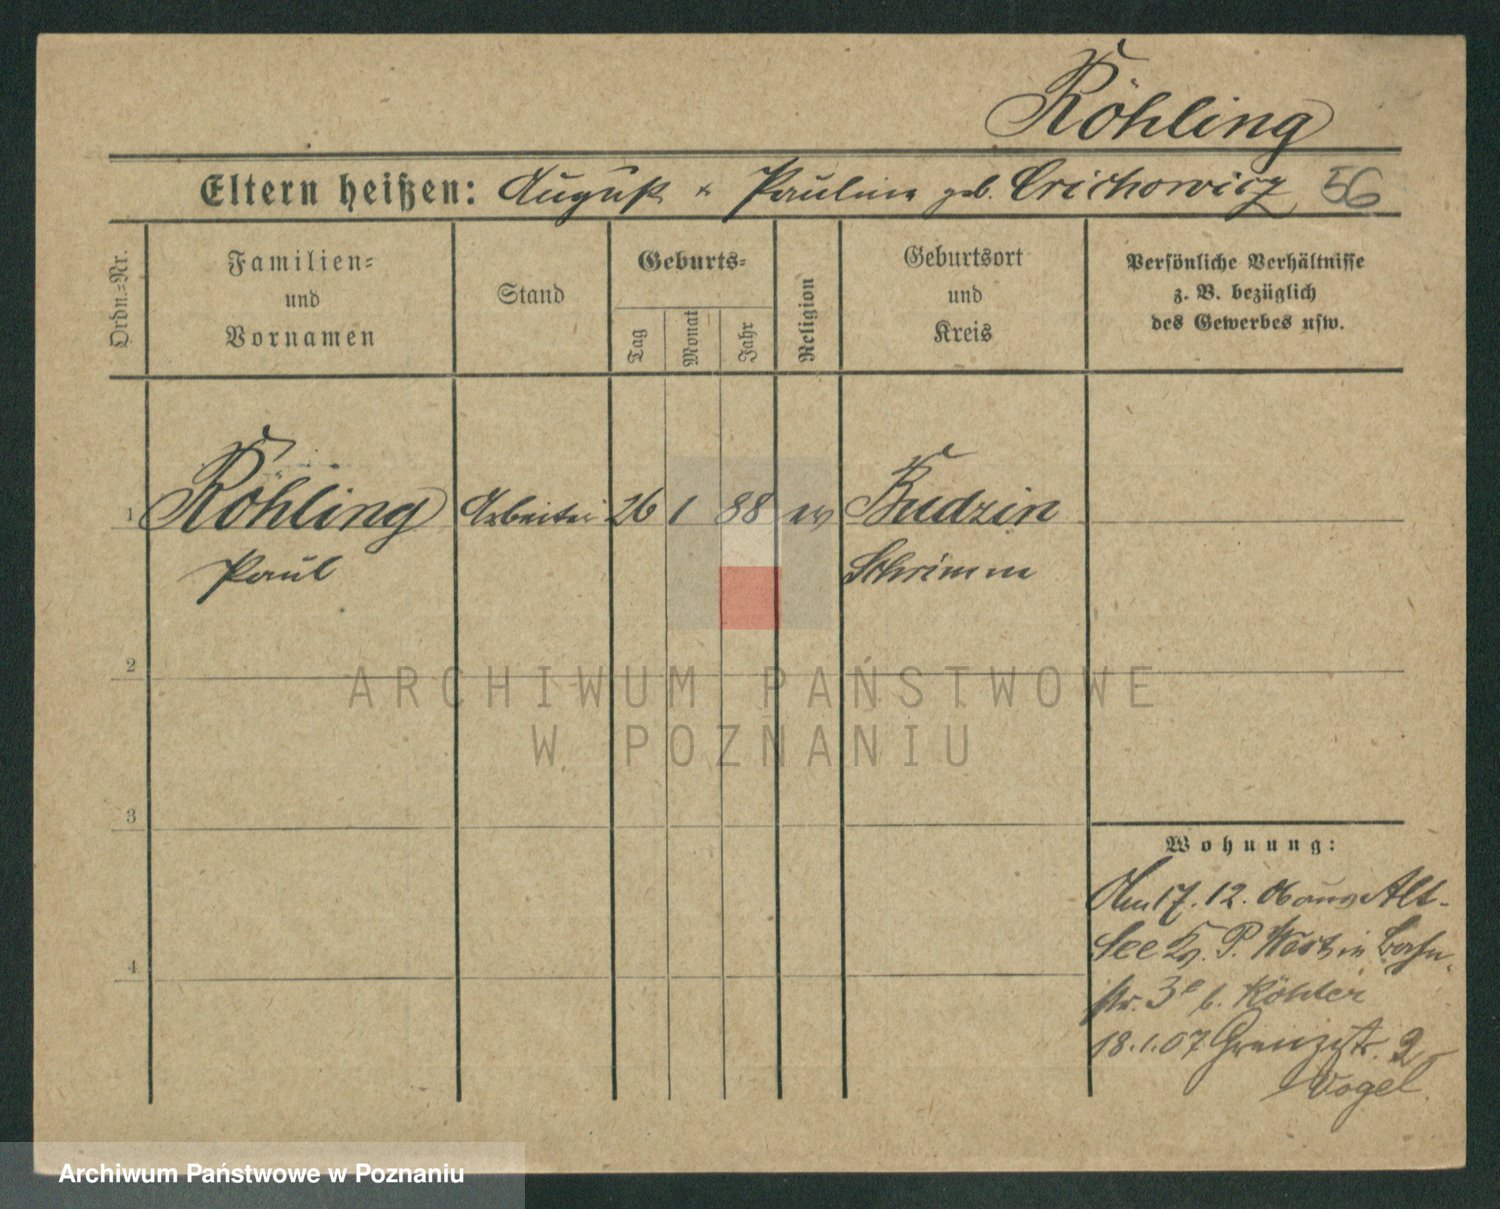 Röhling
Eltern heißen: August & Pauline geb. Crichowicz 56
Ordn.=Nr.
Familien=
und
Vornamen
Stand
Geburts=
Tag
Monat
Jahr
Religion
Geburtsort
und
Kreis
Persönliche Verhältnisse
z. B. bezüglich
des Gewerbes usw.
1 Röhling Arbeiter 26 1 88 ev Budzin
Paul Schrimm
2
ARCHIWUM PAŃSTWOWE
W POZNANIU
3
Wohnung:
Am 17. 12. 06 aus Alt-
4
see P. West in Bahn-
str. 3 b. Köhler
18.1.07 Grenzstr. 2
Vogel
Archiwum Państwowe w Poznaniu